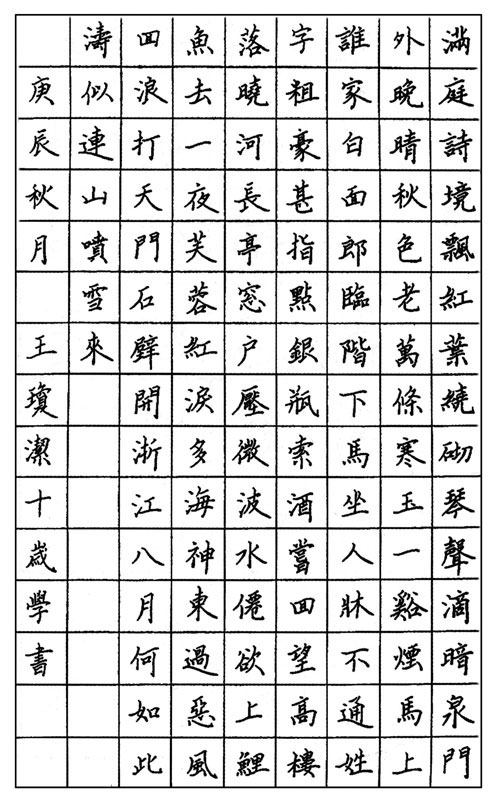 滿庭詩境飄紅葉繞砌琴聲滴暗泉門
外晚晴秋色老萬條寒玉一谿煙馬上
誰家白面郎臨階下馬坐人牀不通姓
字粗豪甚指點銀瓶索酒嘗回望高樓
落曉河長亭窓戶壓微波水僊欲上鯉
魚去一夜芙蓉紅淚多海神東過惡風
回浪打天門石壁開浙江八月何如此
濤似連山噴雪來
庚辰秋月 王瓊潔十歲學書